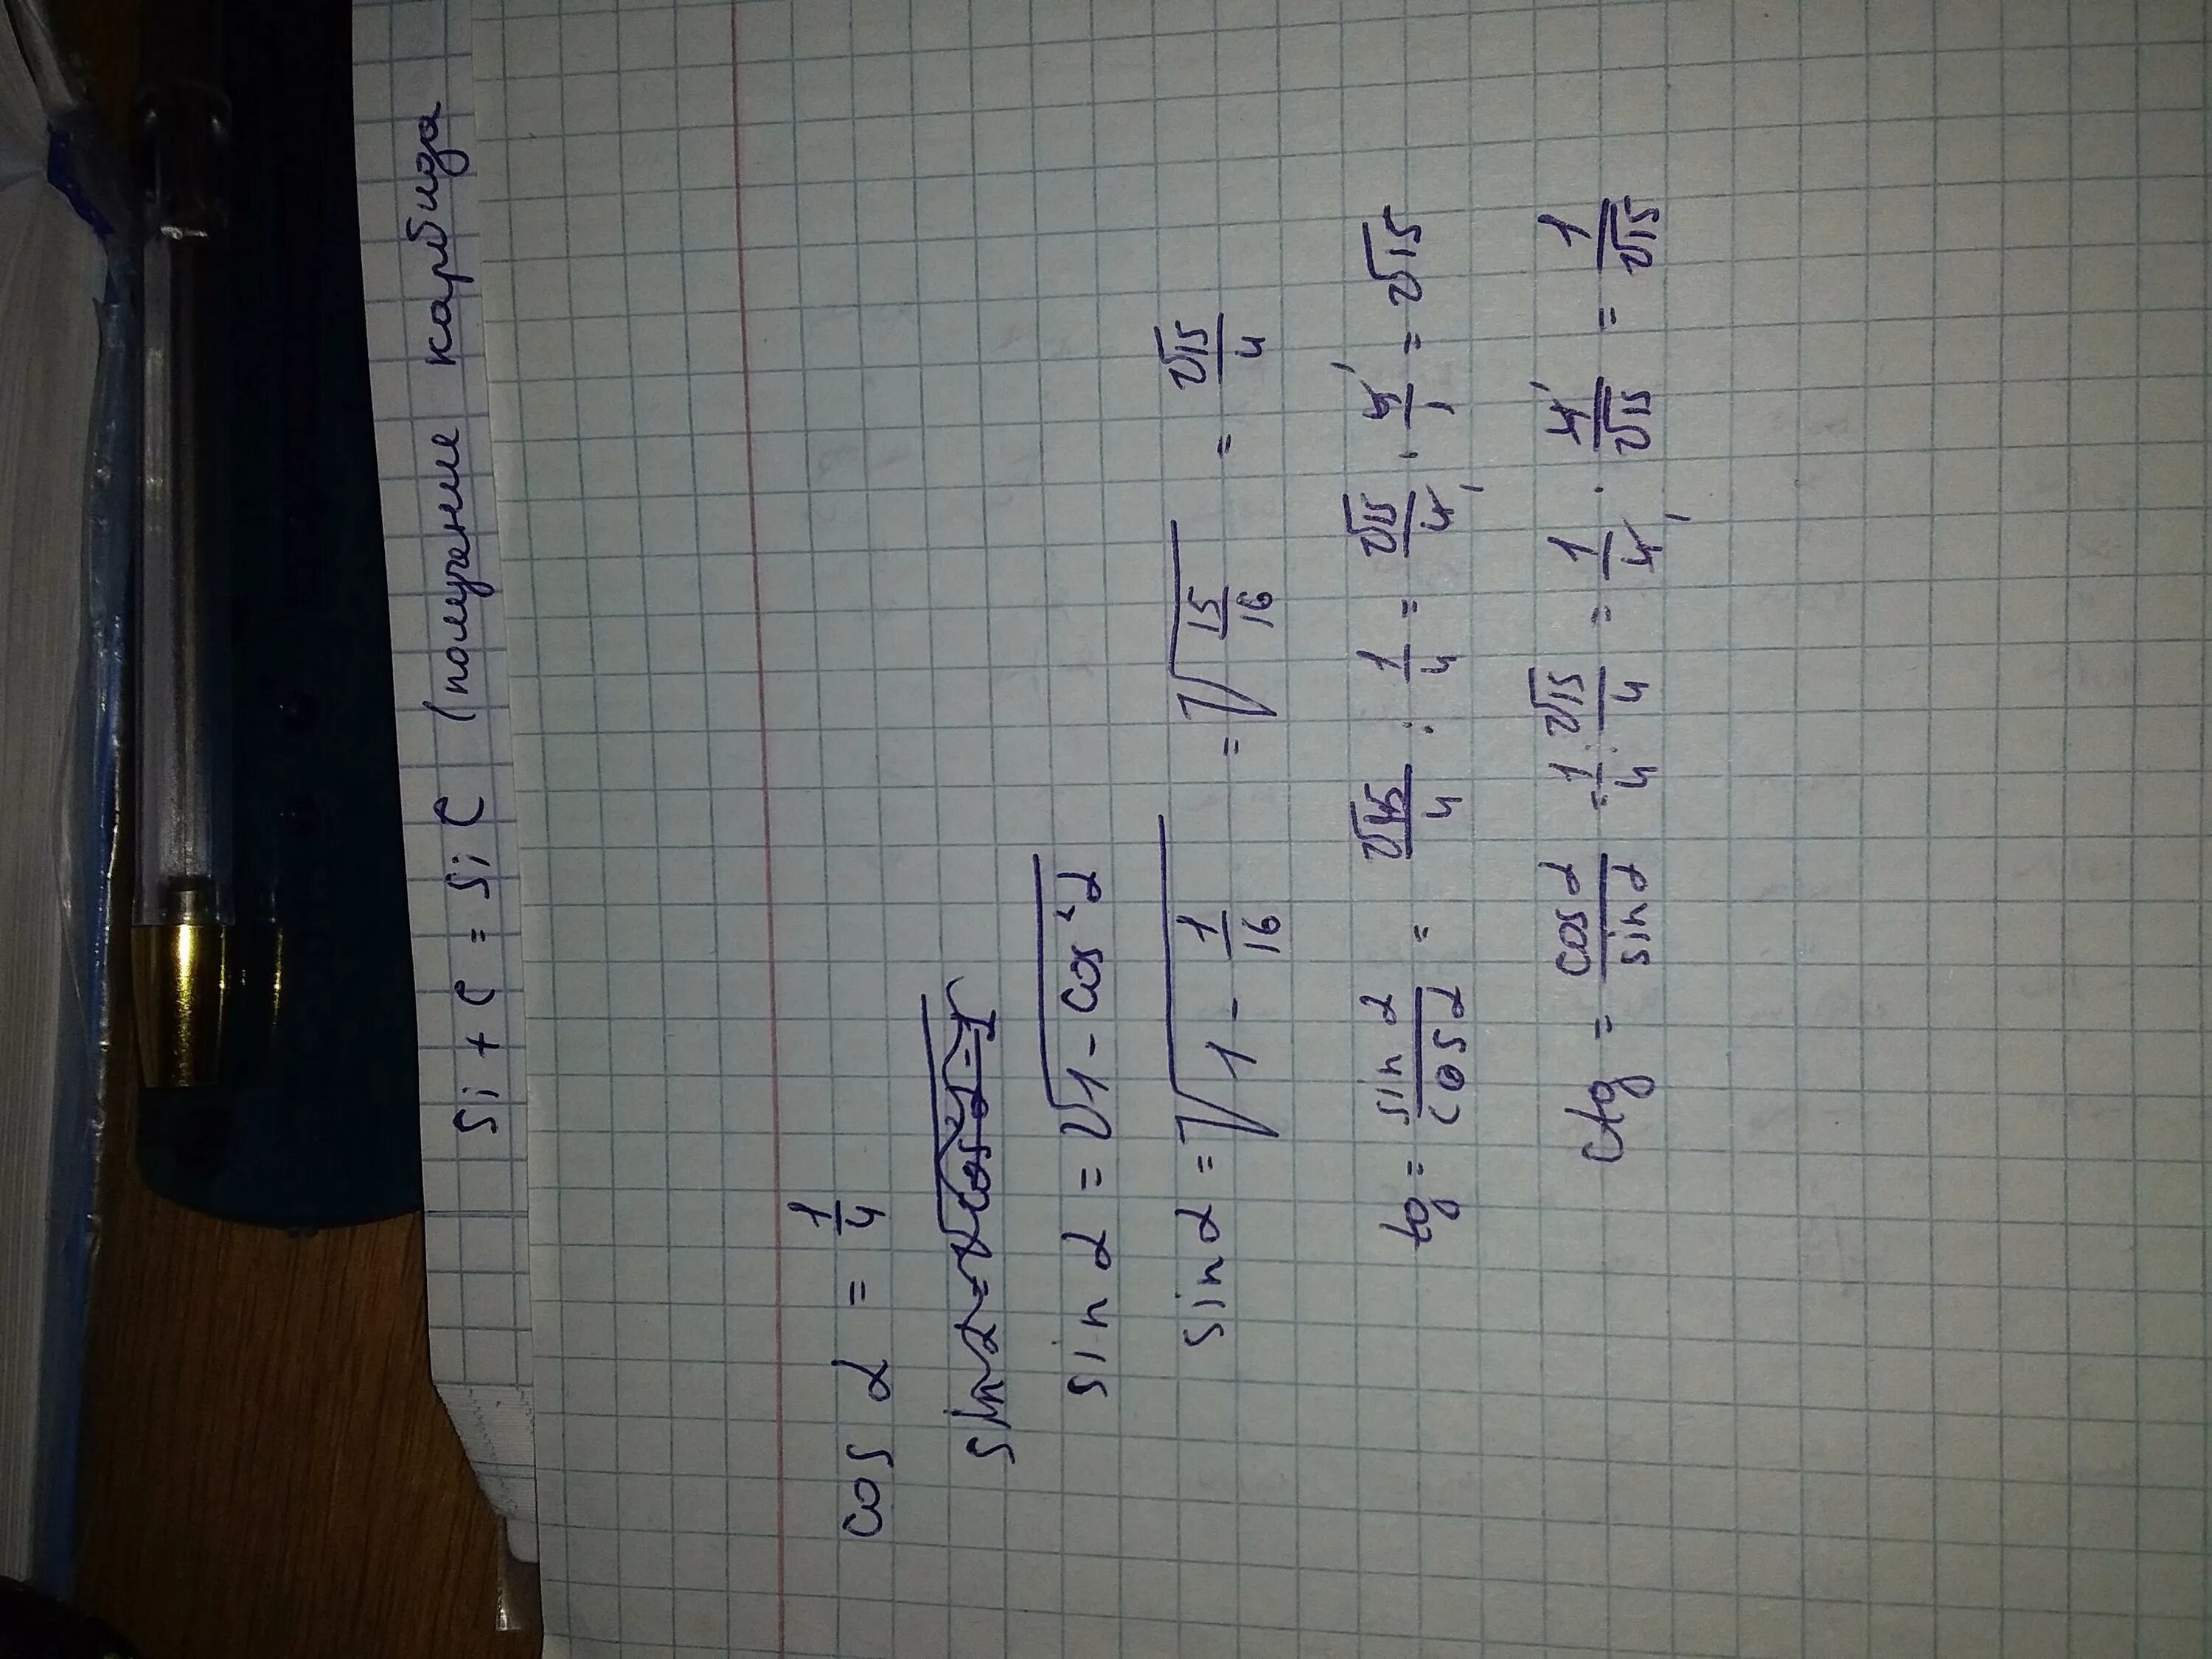 Si + C = Si C (получение карбида
cos α = 1/4
sin α = √(1 - cos²α)
sin α = √(1 - 1/16) = √(15/16) = √15/4
tg = sin α/cos α = √15/4 : 1/4 = √15/4 · 4/1 = √15
ctg = cos α/sin α = 1/4 : √15/4 = 1/4 · 4/√15 = 1/√15